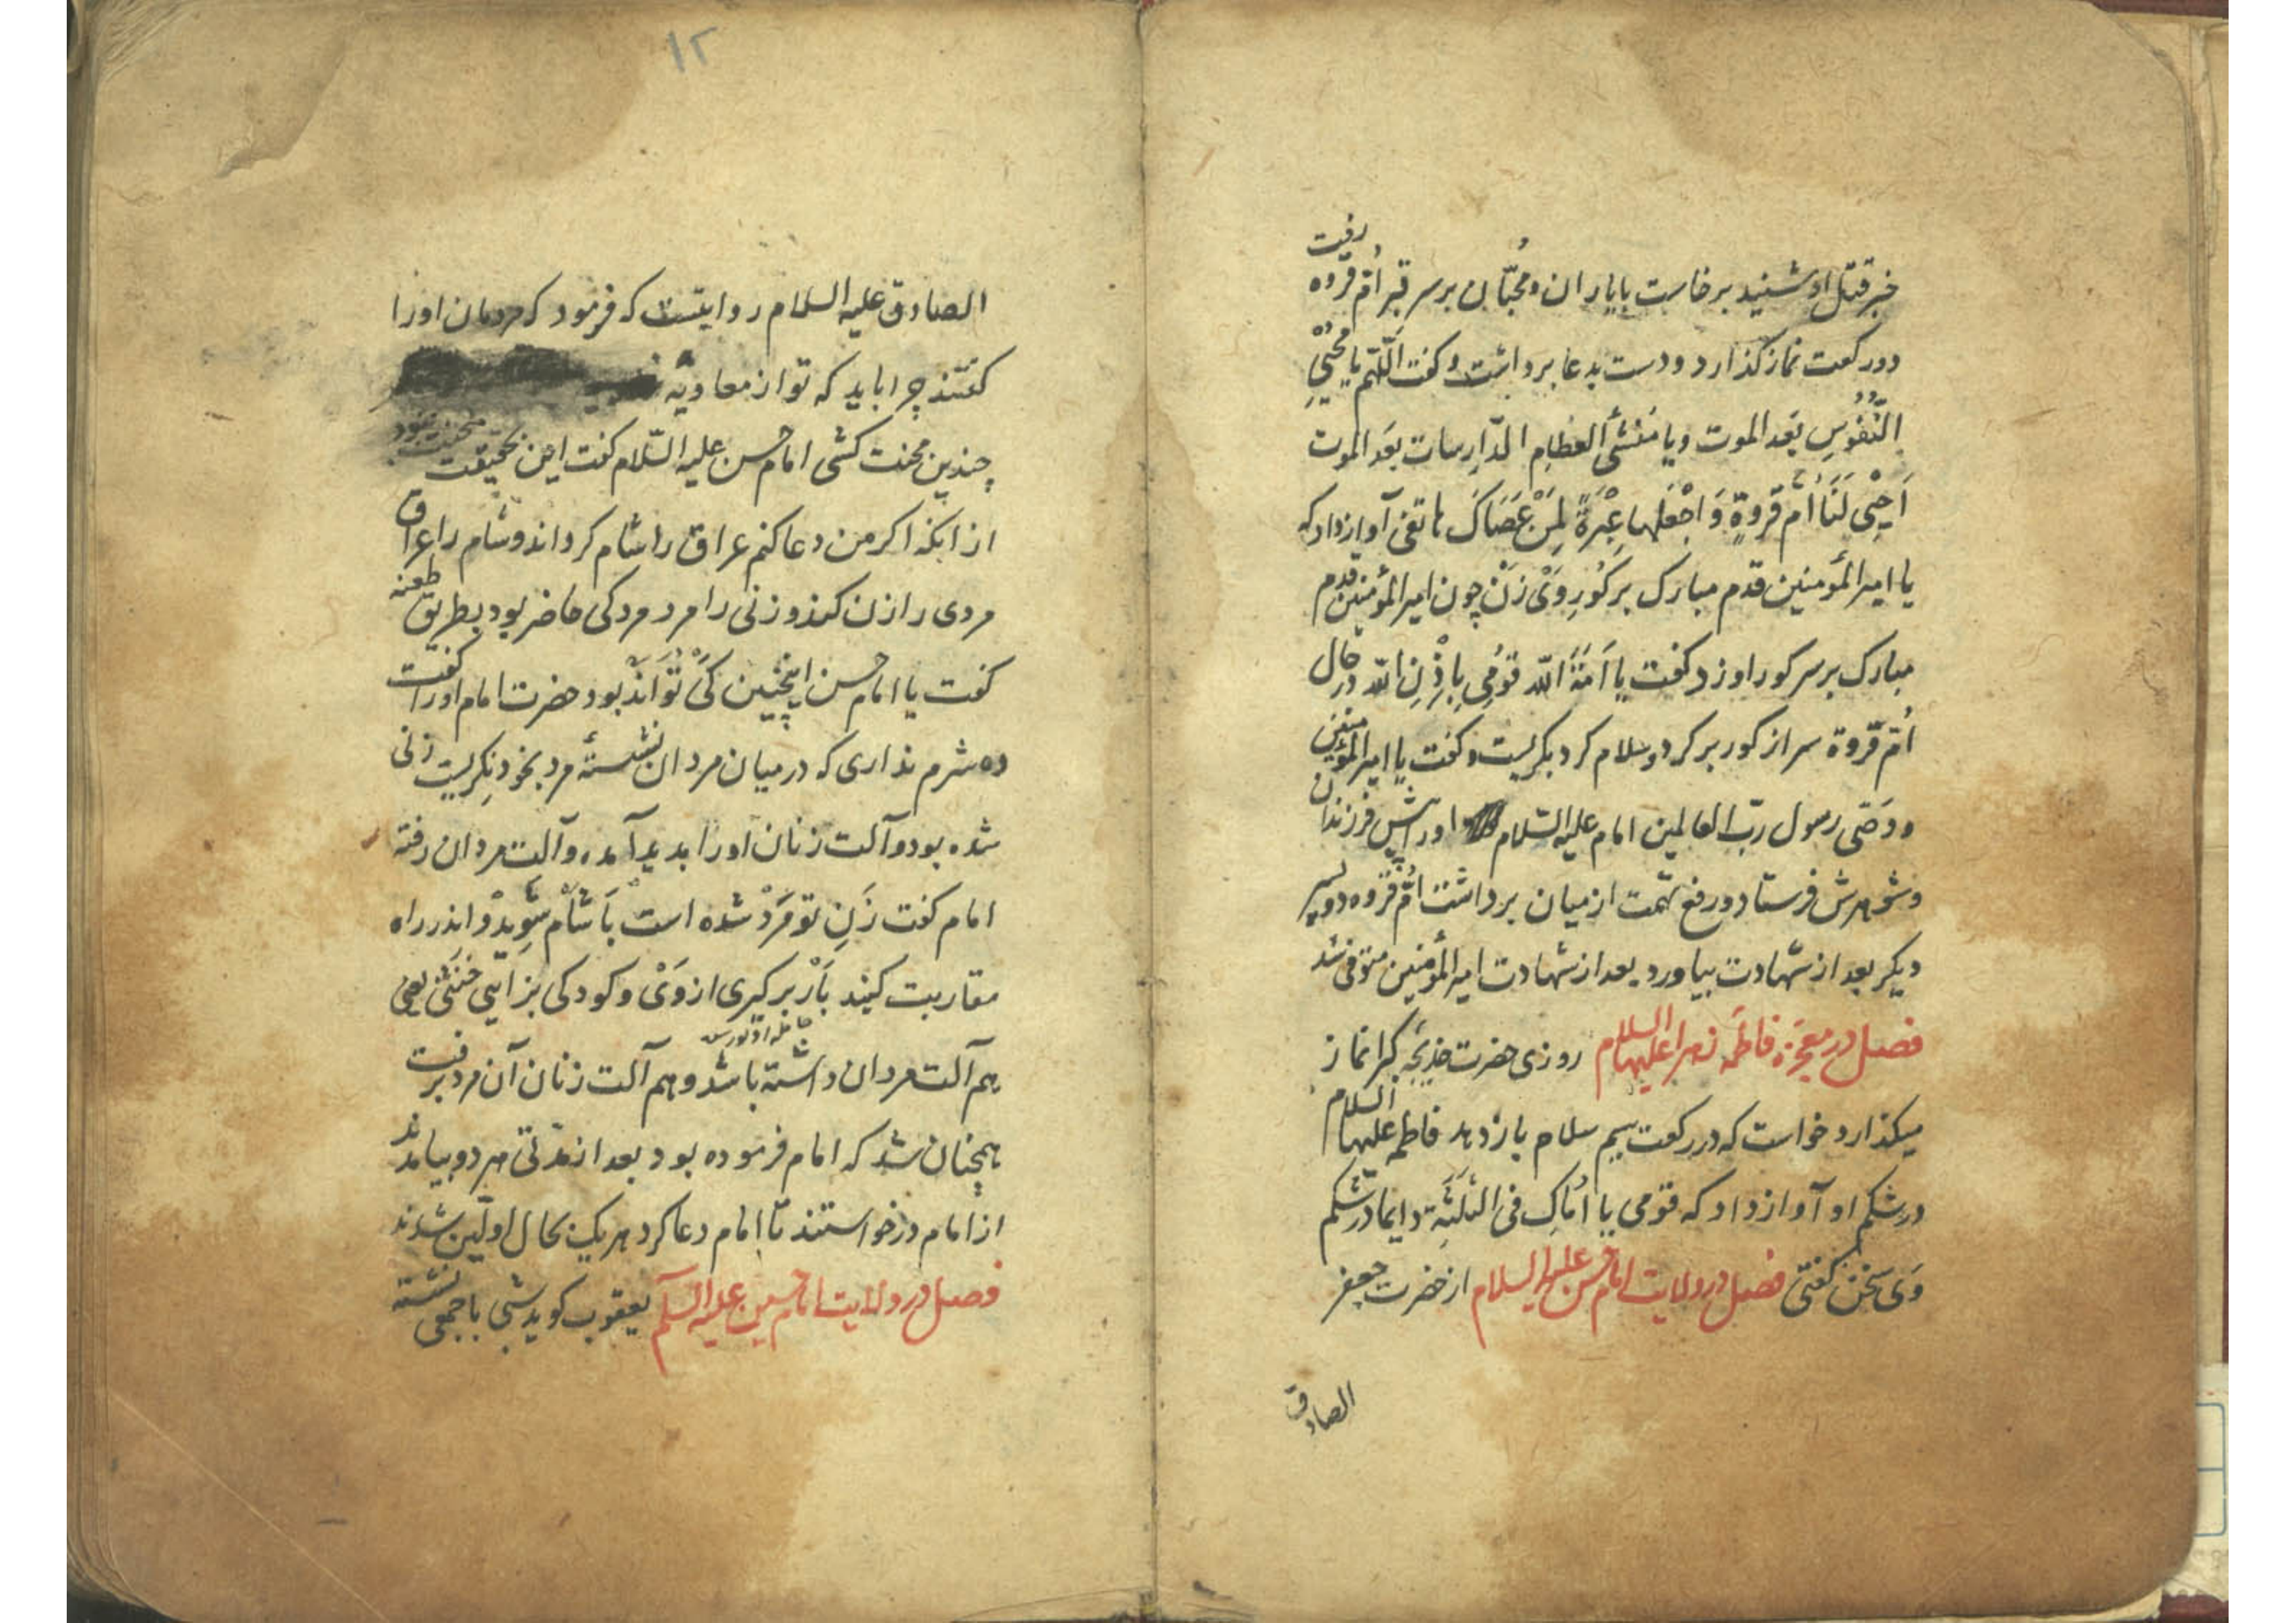 خبر قتل او شنید برخاست با یاران و محبّان بر سر قبر اُمّ فروه رفت
دو رکعت نماز گذارد و دست بدعا برداشت و گفت اللّهم یا محیی
النُّفُوسِ بَعد الموت و یا مُنشئ العظام الدّارِسات بعَد الموت
اَحْیِی لَنَا اُمّ فروةٍ وَ اجْعَلها عِبْرَةً لِمَنْ عَصَاکَ هاتفی آواز داد که
یا امیرالمؤمنین قدم مبارک بر کورِ وَیْ زَنْ چون امیرالمؤمنین قدم
مبارک بر سر کور او زد گفت یا اَمَةَ اللّه قوُمِی بِاِذْنِ اللّه در حال
اُمّ فروة سر از کور بر کرد و سلام کرد بگریست و گفت یا امیرالمؤمنین
و وَصّی رسول ربّ العالمین امام علیه السّلام او را پیش فرزندان
و شوهرش فرستاد و رفع تهمت از میان برداشت اُمّ فروه دو پسر
دیگر بعد از شهادت بیاورد بعد از شهادت امیرالمؤمنین متوفی شد
فصل در معجزه فاطمه زهرا علیها السلام روزی حضرت خدیجه کبرا نماز
میکذارد خواست که در رکعت سیم سلام باز دهد فاطمه علیها السلام
در شکم او آواز داد که قومی یا اُمّاکِ فی الثلَثَة دایما در شکم
وَی سخن گفتی فصل در ولایت امام حسن علیه السلام از حضرت جعفر
الصادق
١٢
الصادق علیه السلام روایتست که فرمود که مردمان او را
گفتند چرا باید که تو از معاویه
چندین محنت کشی امام حسن علیه السّلام گفت این بحقیقت محنت نبود
از آنکه اکر من دعا کنم عراق را شام کرداند و شام را عراق
مردی را زن کند و زنی را مرد مردکی حاضر بود بطریق طعنه
گفت یا امام حسن اینچنین کَیْ تُوَانَدْ بود حضرت امام او را گفت
ده شرم نداری که در میان مردان نشستهٔ مرد بخود نکریست زنی
شده بود و آلت زنان او را بدید آمده و آلت مردان رفته
امام گفت زَنِ تو مَرْد شده است بَا شاْم شَوِیدْ و اندر راه
مقاربت کنید بَاْر بر کیری از وَیْ و کودکی بزائی خُنثی یعنی
هم آلت مردان داشته باشد و هم آلت زنان آن مرد برفت
همچنان شد که امام فرموده بود بعد از مدّتی هر دو بیامدند
از امام درخواستند تا امام دعا کرد هر یک بحال اولّین شدند
فصل در ولایت امام حسین علیه السلم یعقوب کوید شبی با جمعی نشسته